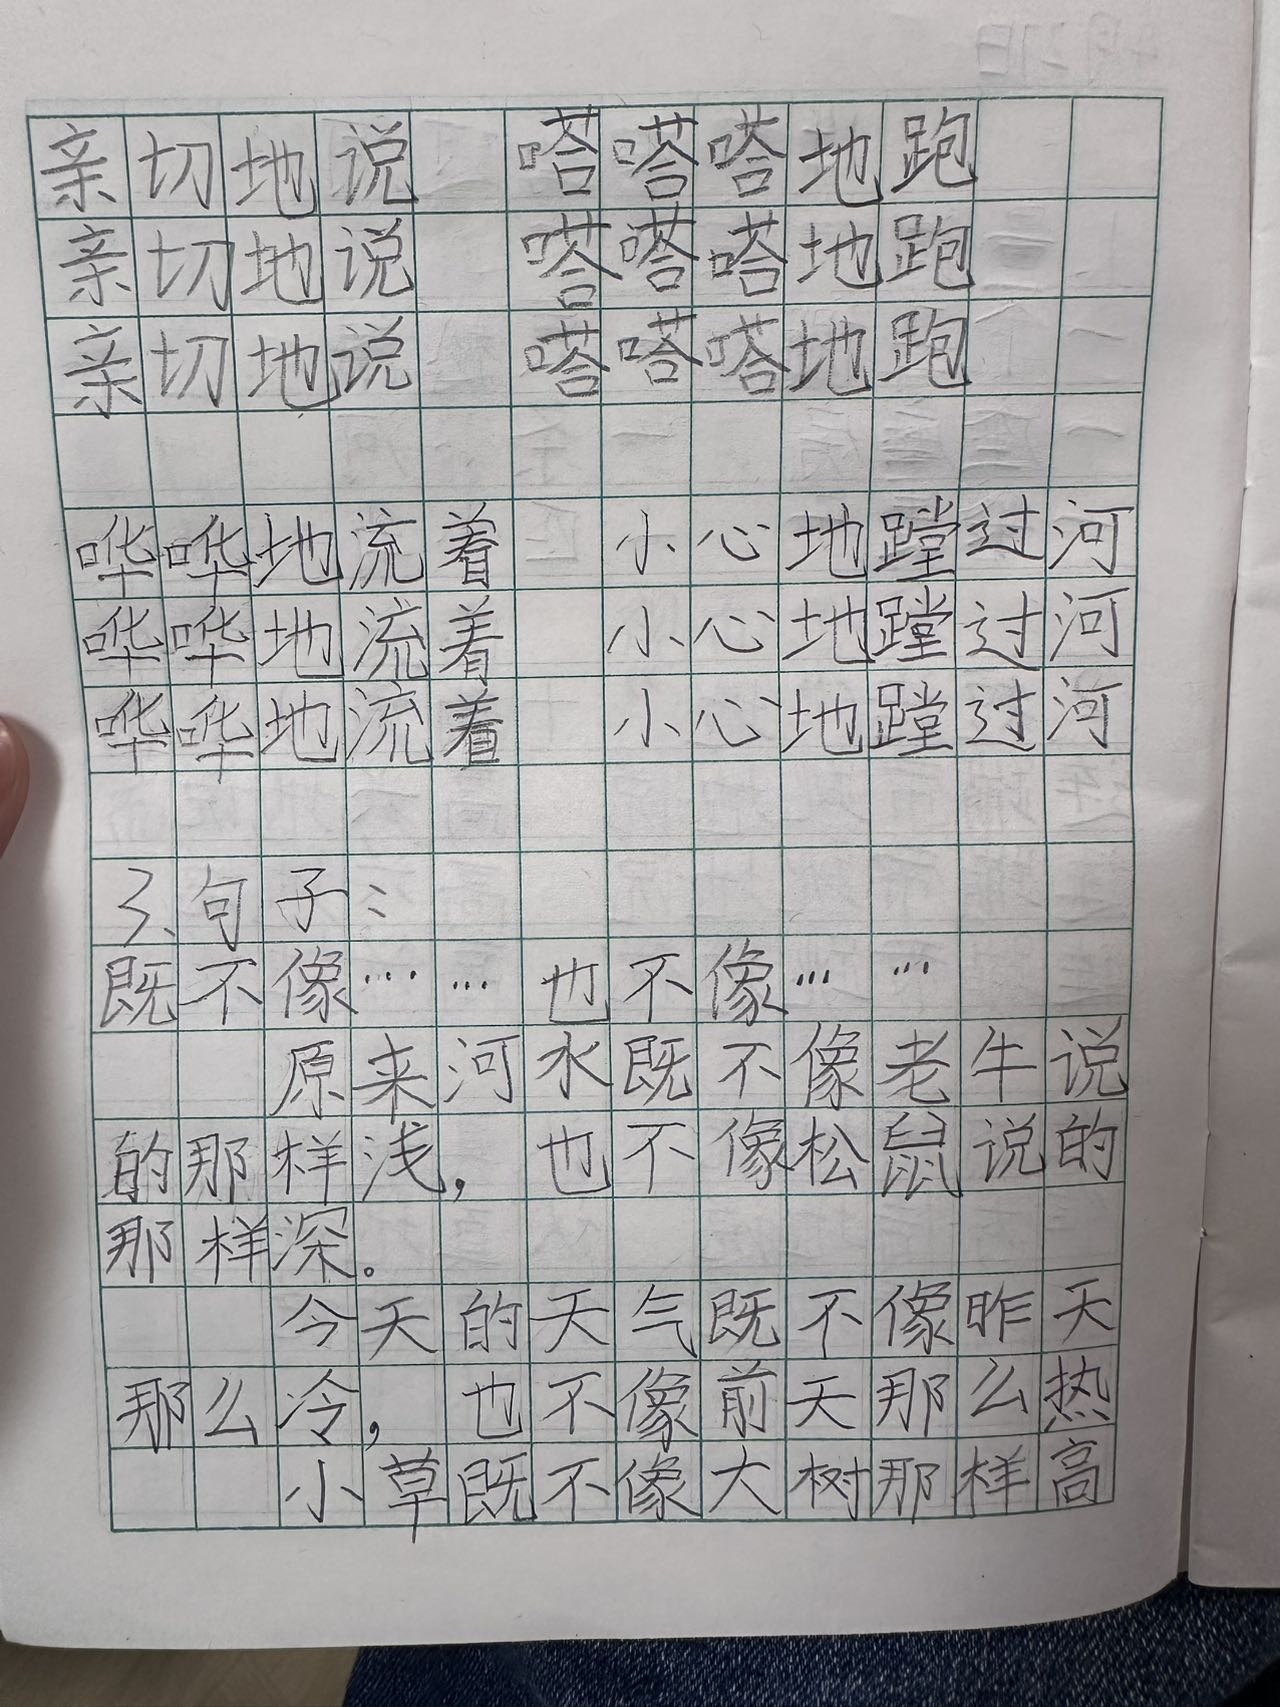 亲切地说 嗒嗒嗒地跑
亲切地说 嗒嗒嗒地跑
亲切地说 嗒嗒嗒地跑
哗哗地流着 小心地蹚过河
哗哗地流着 小心地蹚过河
哗哗地流着 小心地蹚过河
3、句子：
既不像……也不像……
原来河水既不像老牛说
的那样浅，也不像松鼠说的
那样深。
今天的天气既不像昨天
那么冷，也不像前天那么热
小草既不像大树那样高